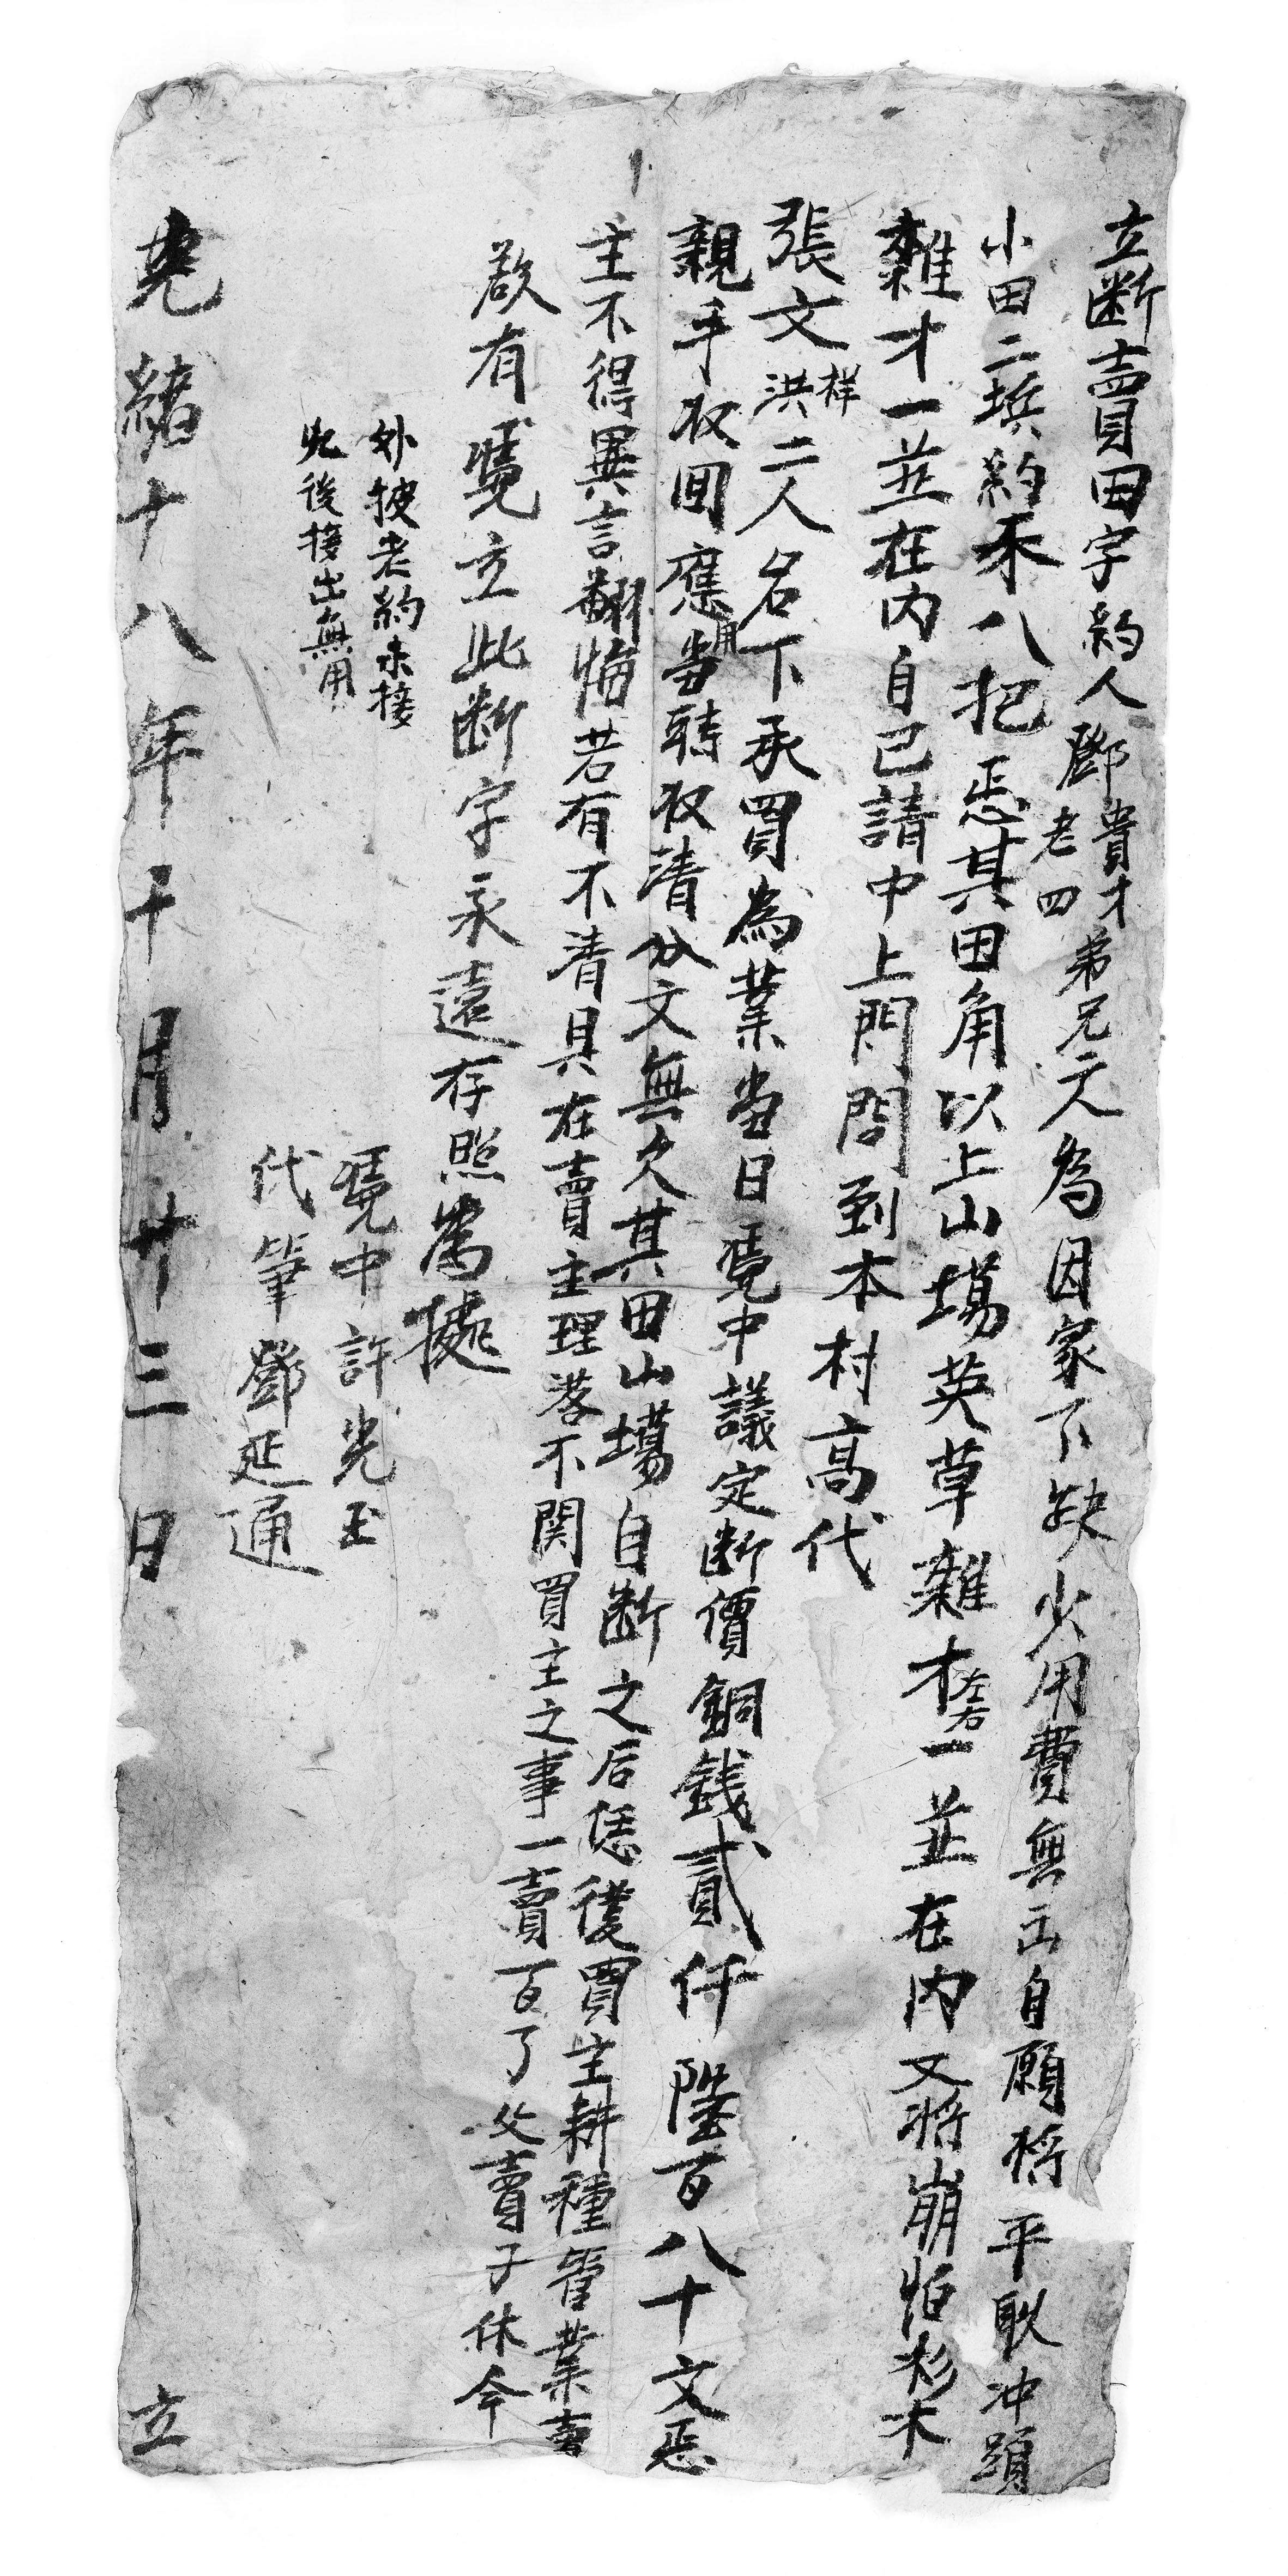 立断賣田字約人鄧貴才老四弟兄二人為因家下缺少用費無出自願将平耿冲頭
小田二坵約禾八把憑其田角以上山塲英草雜才左右一並在内又將崩怕杉木
雜才一並在内自己請中上門問到本村高代
張文祥洪二人名下承買為業當日凴中議定断價銅銭貳仟陸百八十文憑
親手收回應用當時收清分文無欠其田山塲自断之后恁從買主耕種管業賣
主不得異言翻悔若有不清具在賣主理落不関買主之事一賣百了父賣子休今
欲有凴立此断字永遠存照為據
外披老約未接
此後接出無用
凴中許光玉
代筆鄧延通
光緒十八年十月廿三日立